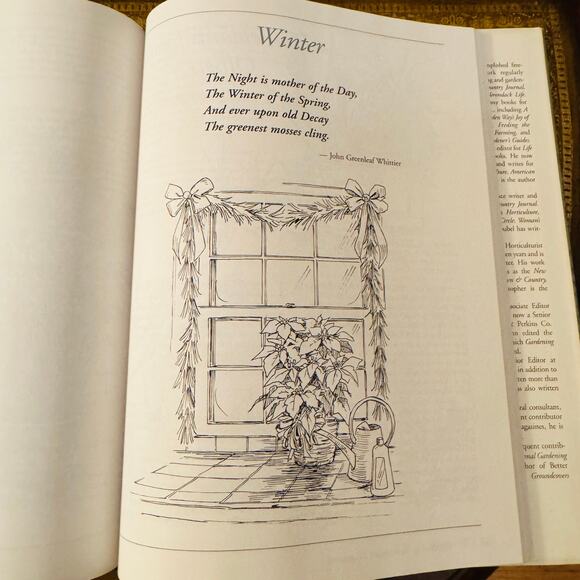 Winter
The Night is mother of the Day,
The Winter of the Spring,
And ever upon old Decay
The greenest mosses cling.
— John Greenleaf Whittier
mplished free-
ork regularly
and garden-
untry Journal.
dirondack Life.
my books for
including A
den Way's Joy of
Feeding the
Farming, and
dener's Guides
editor for Life
ooks. He now
and writes for
ture, American
is the author
writer and
untry Journal.
Horticulture,
Circle, Woman's
abel has writ-
Horticulturist
en years and is
ter. His work
s as the New
wn & Country,
stopher is the
ssociate Editor
now a Senior
Perkins Co.
n edited the
hich Gardening
ral.
ior Editor at
in addition to
tten more than
as also written
ral consultant,
nt contributor
agazines, he is
quent contrib-
nal Gardening
hor of Better
Groundcovers